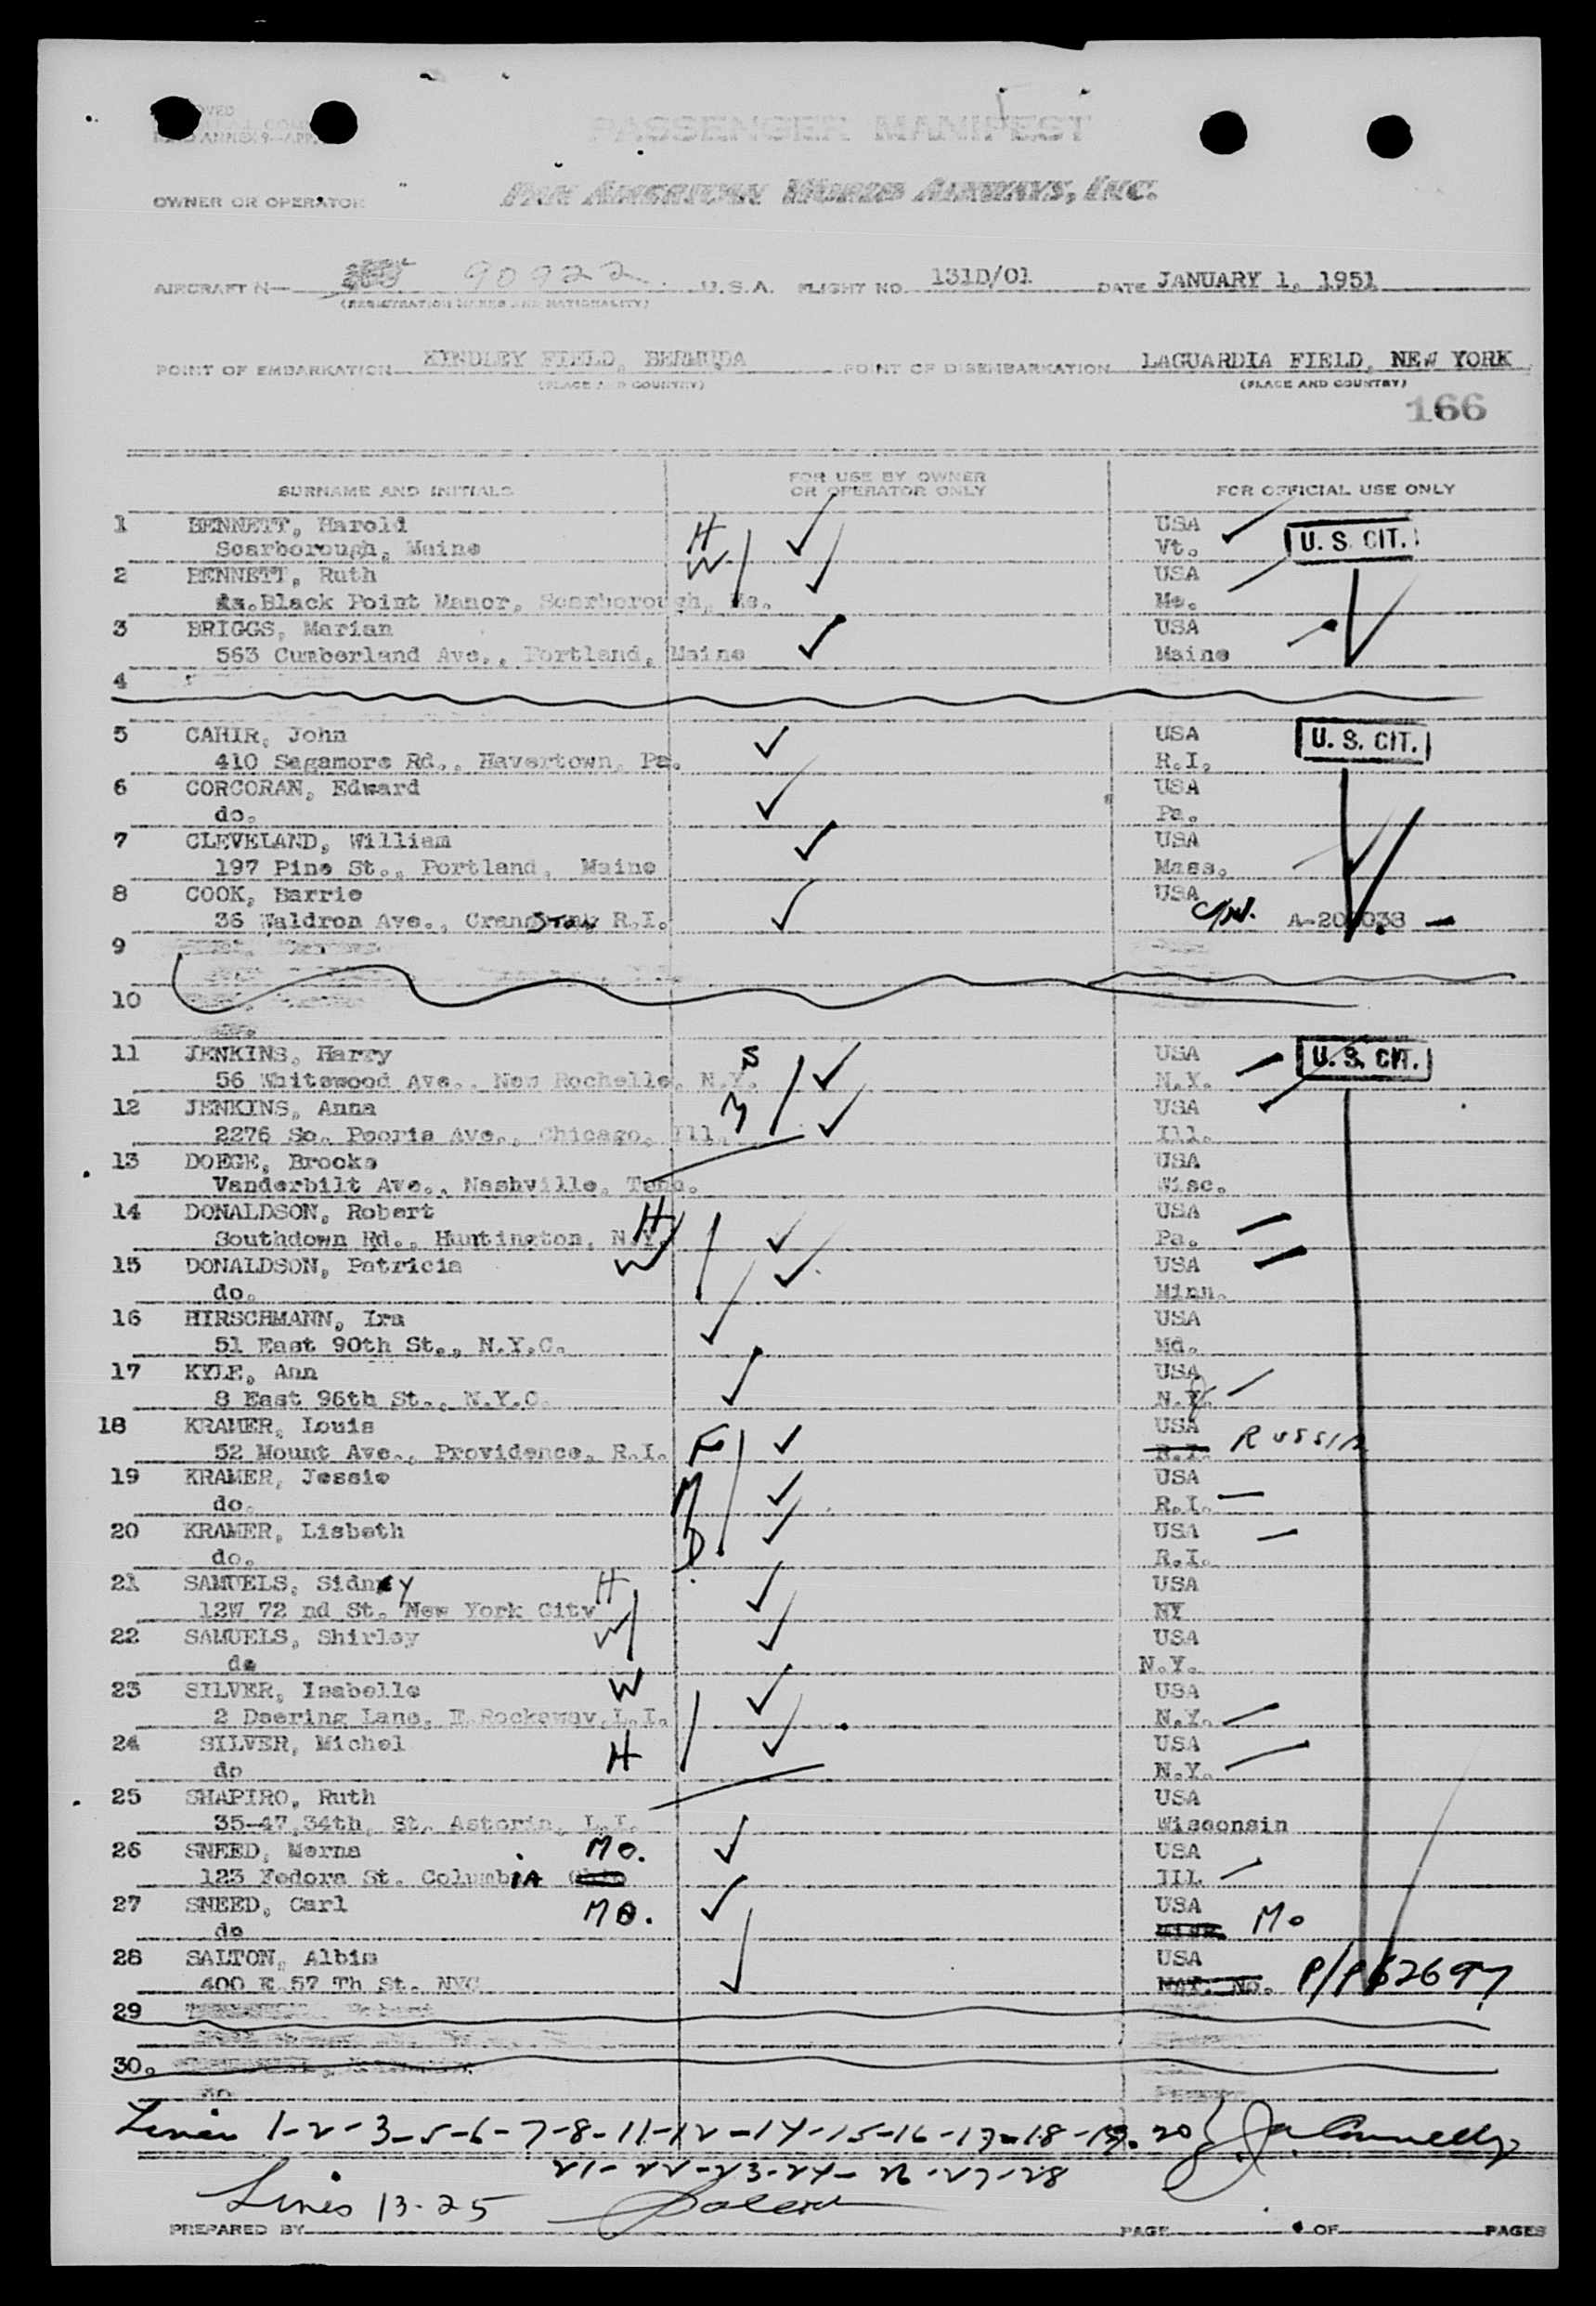 PASSENGER MANIFEST
OWNER OR OPERATOR PAN AMERICAN WORLD AIRWAYS, INC.
AIRCRAFT N— 90922 U.S.A. FLIGHT NO. 131D/01 DATE JANUARY 1, 1951
(REGISTRATION MARKS AND NATIONALITY)
POINT OF EMBARKATION KINDLEY FIELD, BERMUDA POINT OF DISEMBARKATION LAGUARDIA FIELD, NEW YORK
(PLACE AND COUNTRY) (PLACE AND COUNTRY)
166
SURNAME AND INITIALS FOR USE BY OWNER OR OPERATOR ONLY FOR OFFICIAL USE ONLY
1 BENNETT, Harold H USA U.S. CIT.
Scarborough, Maine Vt.
2 BENNETT, Ruth W USA
Black Point Manor, Scarborough, Me. Me.
3 BRIGGS, Marian USA
563 Cumberland Ave., Portland, Maine Maine
4
5 CAHIR, John USA U.S. CIT.
410 Sagamore Rd., Havertown, Pa. R.I.
6 CORCORAN, Edward USA
do. Pa.
7 CLEVELAND, William USA
197 Pine St., Portland, Maine Mass.
8 COOK, Barrie USA
36 Waldron Ave., Cranston R.I.
9
10
11 JENKINS, Harry S USA U.S. CIT.
56 Whitewood Ave., New Rochelle, N.Y. N.Y.
12 JENKINS, Anna M USA
2276 So. Peoria Ave., Chicago, Ill. Ill.
13 DOEGE, Brooks USA
Vanderbilt Ave., Nashville, Tenn. Wisc.
14 DONALDSON, Robert H USA
Southdown Rd., Huntington, N.Y. Pa.
15 DONALDSON, Patricia W USA
do. Minn.
16 HIRSCHMANN, Ira USA
51 East 90th St., N.Y.C. Md.
17 KYLE, Ann USA
8 East 96th St., N.Y.C. N.Y.
18 KRAMER, Louis F USA
52 Mount Ave., Providence, R.I. R.I. RUSSIA
19 KRAMER, Jessie M USA
do. R.I.
20 KRAMER, Lisbeth D USA
do. R.I.
21 SAMUELS, Sidney H USA
12W 72 nd St. New York City NY
22 SAMUELS, Shirley W USA
do N.Y.
23 SILVER, Isabelle W USA
2 Deering Lane, E Rockaway, L.I. N.Y.
24 SILVER, Michel H USA
do N.Y.
25 SHAPIRO, Ruth USA
35-47,34th, St. Astoria, L.I. Wisconsin
26 SNEED, Merna Mo. USA
123 Fedora St. Columbia Ill
27 SNEED, Carl Mo. USA
do Mo
28 SALTON, Albin USA
400 E 57 Th St. NYC NAT. NO. P/P 62697
29
30.
do
Lines 1-2-3-5-6-7-8-11-12-14-15-16-17-18-19-20
21-22-23-24-26-27-28
Lines 13-25
PREPARED BY PAGE OF PAGES